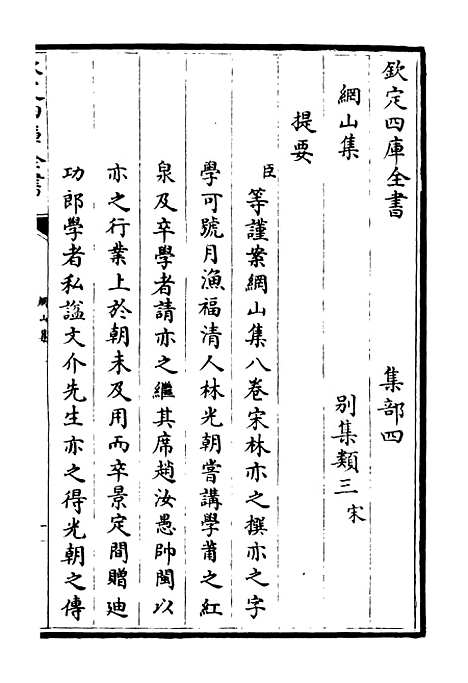 欽定四庫全書 集部四
網山集 別集類三 宋
提要
臣等謹案網山集八卷宋林亦之撰亦之字
學可號月漁福清人林光朝嘗講學莆之紅
泉及卒學者請亦之繼其席趙汝愚帥閩以
亦之行業上於朝未及用而卒景定間贈迪
功郎學者私諡文介先生亦之得光朝之傳
網山集
一